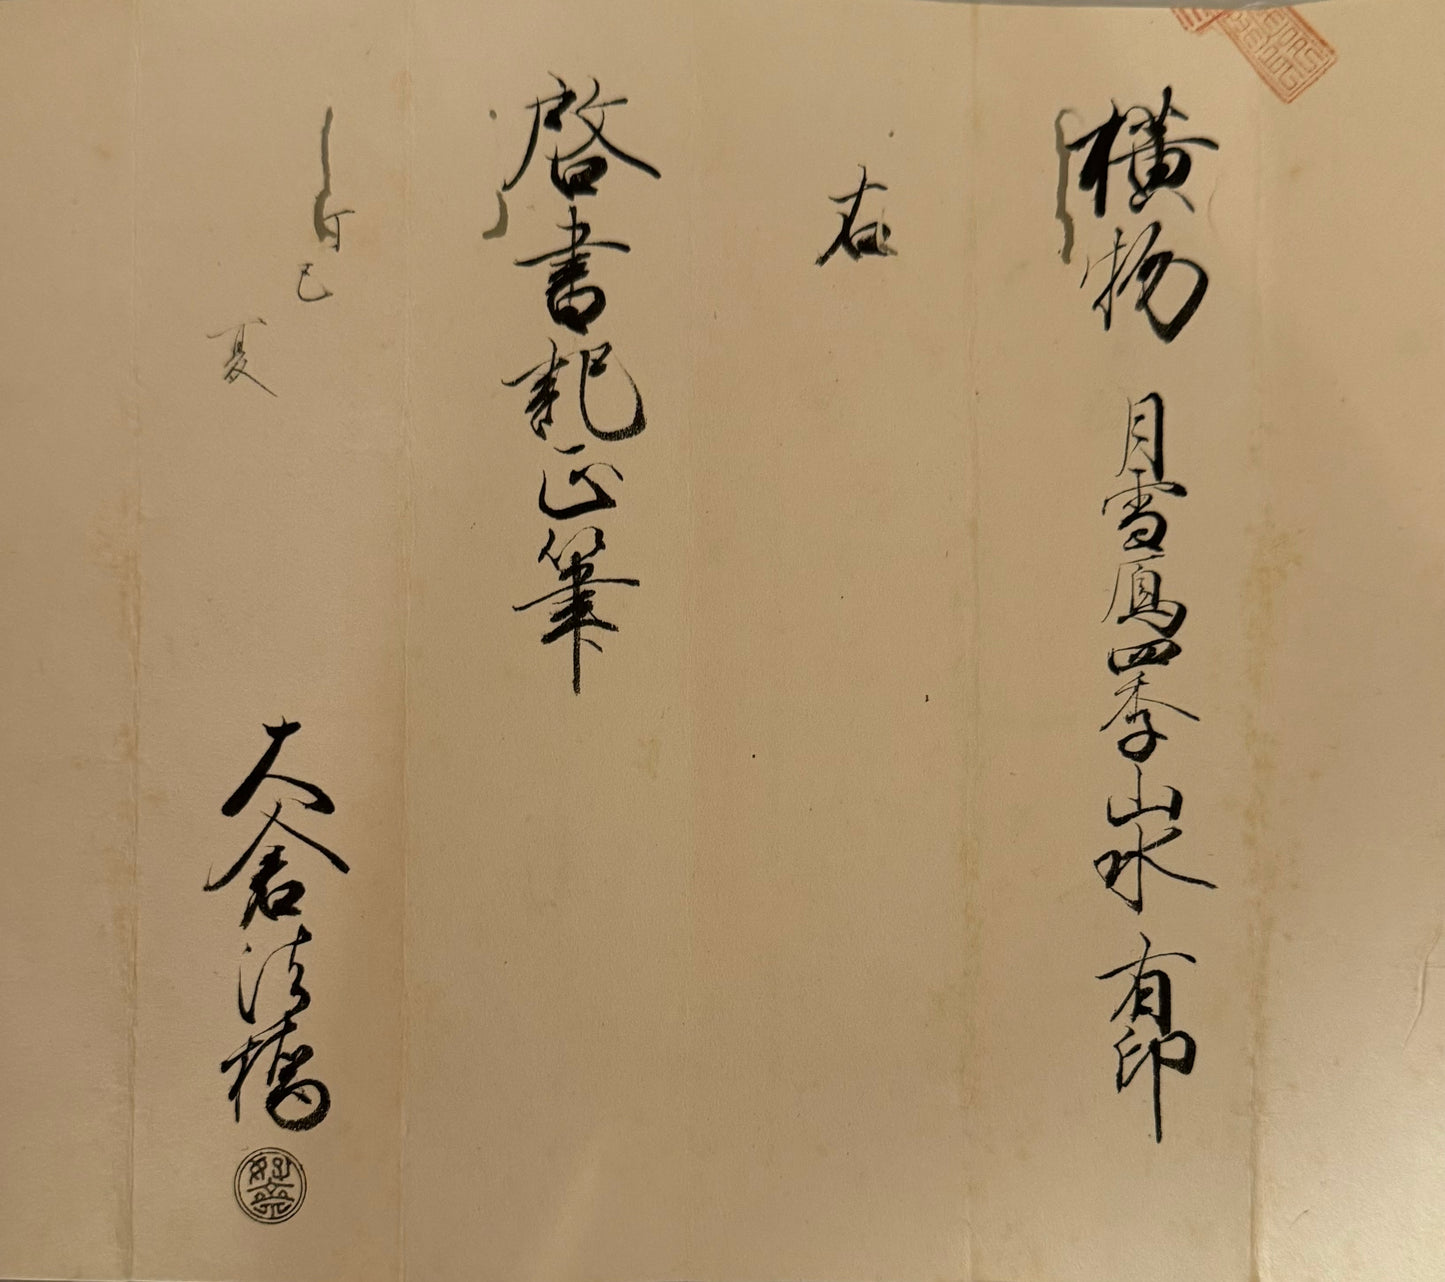 横物 月雪鳳四季山水 有印
右
啓書記正筆
丁巳
夏
大倉法橋
好斎